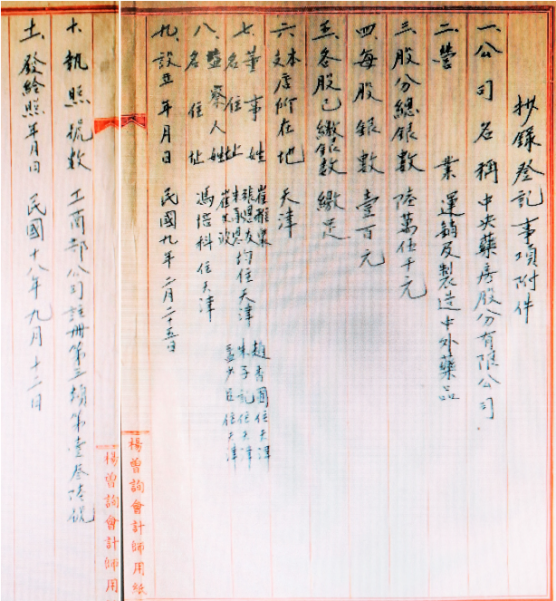 抄錄登記事項附件
一、公司名稱 中央藥房股份有限公司
二、營業 運銷及製造中外藥品
三、股分總銀數 陸萬伍千元
四、每股銀數 壹百元
五、各股已繳銀數 繳足
六、本支店所在地 天津
七、董事姓名住址 均住天津 住天津 住天津 住天津
八、監察人姓名住址 馮信科住天津
九、設立年月日 民國九年二月二十五日
十、執照號數 工商部公司註冊第三類第壹叁陸號
十一、發給照年月日 民國十八年九月十二日
楊曾詢會計師用
楊曾詢會計師用紙